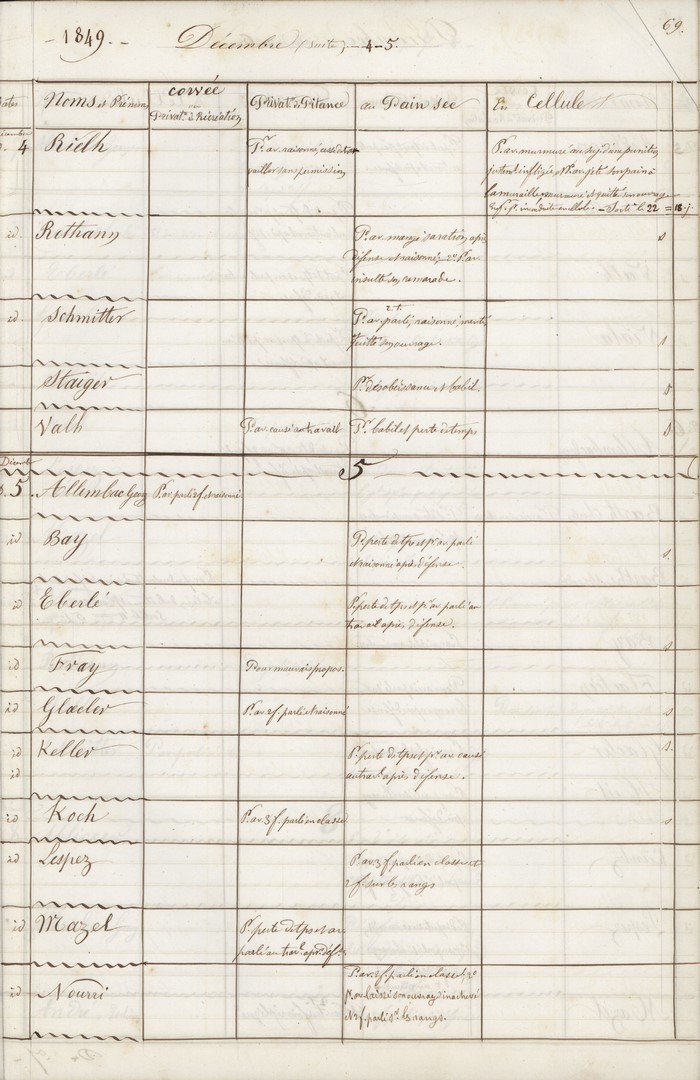 69.
- 1849. -
Décembre (suite) - 4-5.
Dates
Noms et Prénoms
corvée
ou
Privat. de Récréation
Privat. de Pitance
au Pain sec
En Cellule
Décembre
4
Rielh
Pr. av. raisonné, cassé et
travailler sans permission
Pr. av. murmuré au suj. d'une punition
justent. infligée Pr. av. jeté son pain à
la muraille, murmuré et quitté son ouvrage
- Sorti le 22 = 18 j.
id
Rothann
Pr. av. mangé sa ration, après
défense et raisonné; - 2° Pr. av.
insulté son camarade.
id
Schmitter
2 f.
Pr. av. parlé, raisonné, menti
quitté son ouvrage.
Staiger
Pr. désobéissance et babil.
Valh
Pr. av. causé au travail
Pr. babil et perte de temps
Décemb.
5
5.
Pr. av. parlé 2 f. et raisonné
id
Bay
Pr. perte de tps et pr. av. parlé
et raisonné après défense.
id
Eberlé
Pr. perte de tps et pr. av. parlé au
travail après défense.
id
Fray
Pour mauvais propos.
id
Glaeler
Pr. av. 2 f. parlé et raisonné
id
Keller
Pr. perte de tps et pr. av. causé
id
au trav. après défense.
Koch
Pr. av. 3 f. parlé en classe
id
Lespez
Pr. av. 3 f. parlé en classe et
2 f. sur les rangs
id
Mazel
Pr. perte de tps et av.
parlé au trav. apr. déf.
id
Nourri
Pr. av. 2 f. parlé en classe et 2°
Pr. av. laissé son ouvrage inachevé
et 2 f. parlé sr. les rangs.